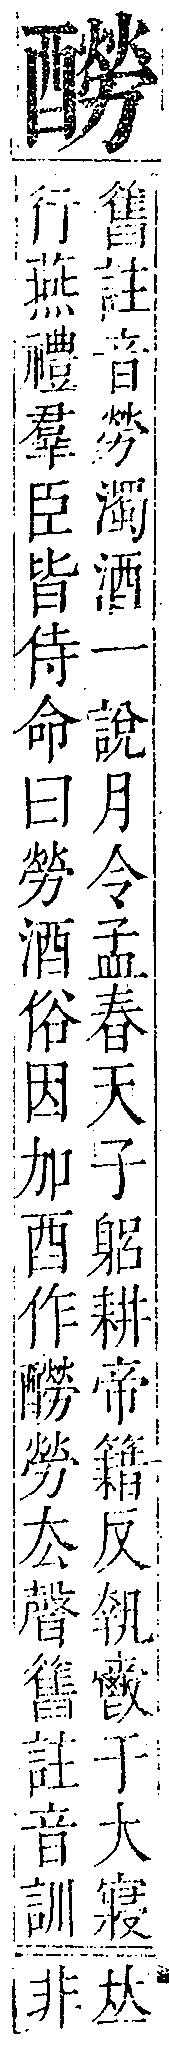 醪
舊註音勞濁酒一說月令孟春天子躬耕帝籍反執爵于大寢
行燕禮羣臣皆侍命曰勞酒俗因加酉作醪勞厺聲舊註音訓
𠀤
非